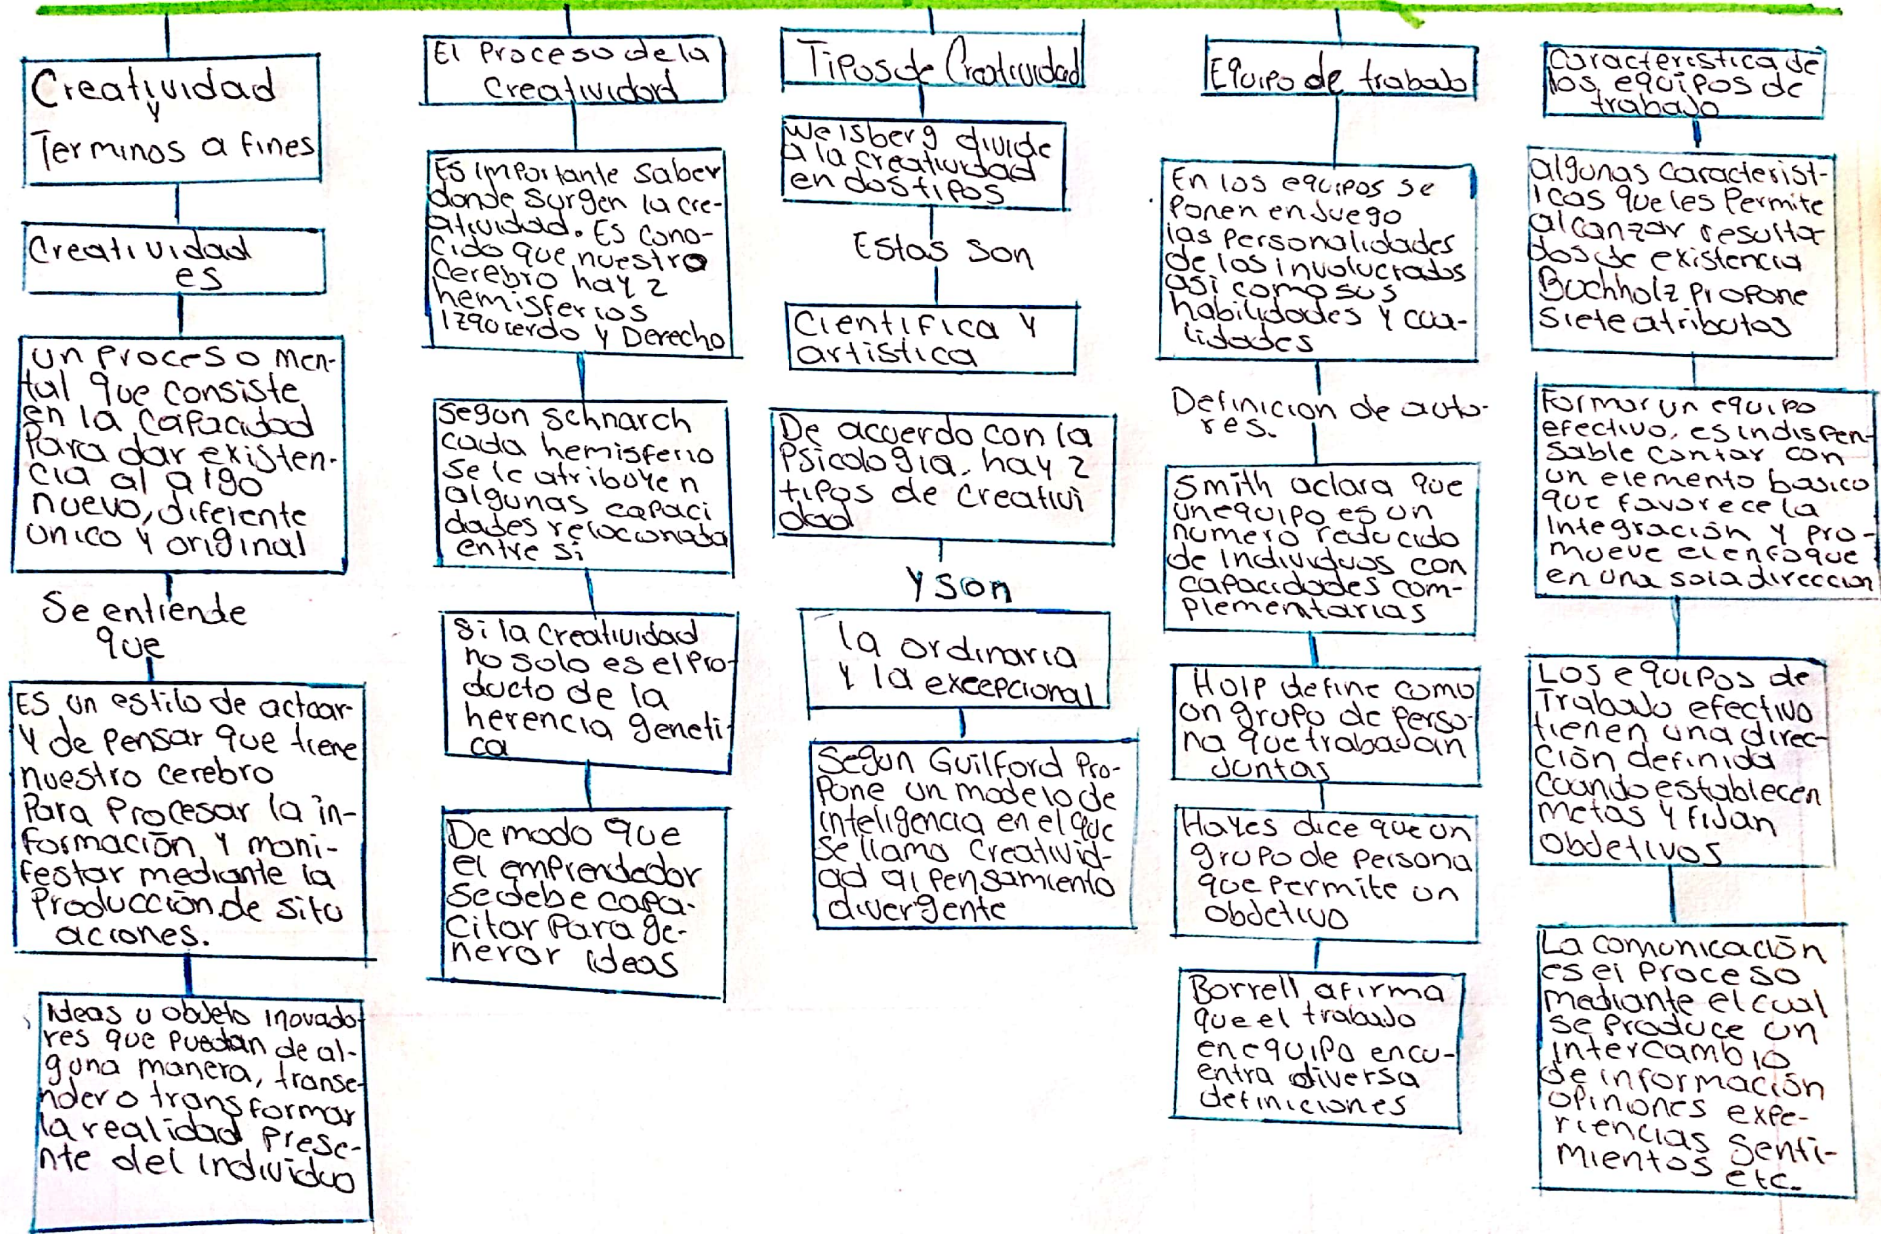 Creatividad
y
Terminos a fines
Creatividad
es
un proceso men-
tal que consiste
en la capacidad
Para dar existen-
cia al algo
nuevo, diferente
unico y original
Se entiende
que
Es un estilo de actuar
y de pensar que tiene
nuestro cerebro
Para Procesar la in-
formación y mani-
festar mediante la
Producción de situ
aciones.
Ideas u objeto inovado
res que puedan de al-
guna manera, transe-
nder o transformar
la realidad prese-
nte del individuo
El Proceso de la
Creatividad
Es importante saber
donde surgen la cre-
atividad. Es cono-
cido que nuestro
cerebro hay 2
hemisferios
Izquierdo y Derecho
segun schnarch
cada hemisferio
se le atribuyen
algunas capaci
dades relacionada
entre si
si la creatividad
no solo es el Pro-
ducto de la
herencia geneti-
ca
De modo que
el emprendedor
se debe capa-
citar para ge-
nerar ideas
Tipos de Creatividad
Weisberg divide
a la creatividad
en dos tipos
Estas son
Cientifica y
artistica
De acuerdo con la
Psicologia, hay 2
tipos de creativi
dad
y son
la ordinaria
y la excepcional
Segun Guilford Pro-
Pone un modelo de
inteligencia en el que
se llama creativid-
ad al pensamiento
divergente
Equipo de trabajo
En los equipos se
Ponen en juego
las personalidades
de los involucrados
asi como sus
habilidades y cua-
lidades
Definicion de auto-
res.
Smith aclara que
un equipo es un
numero reducido
de individuos con
capacidades com-
plementarias
Holp define como
un grupo de perso-
na que trabajan
juntas
Hayes dice que un
grupo de persona
que permite un
objetivo
Borrell afirma
que el trabajo
en equipo encu-
entra diversa
definiciones
Caracteristica de
los equipos de
trabajo
algunas caracterist-
icas que les Permite
alcanzar resulta
dos de existencia
Buchholz propone
siete atributos
Formar un equipo
efectivo, es indispen-
sable contar con
un elemento basico
que favorece la
integración y pro-
mueve el enfoque
en una sola direccion
Los equipos de
Trabajo efectivo
tienen una direc-
ción definida
cuando establecen
metas y fijan
objetivos
La comunicación
es el proceso
mediante el cual
se produce un
intercambio
de información
opiniones expe-
riencias senti-
mientos etc.